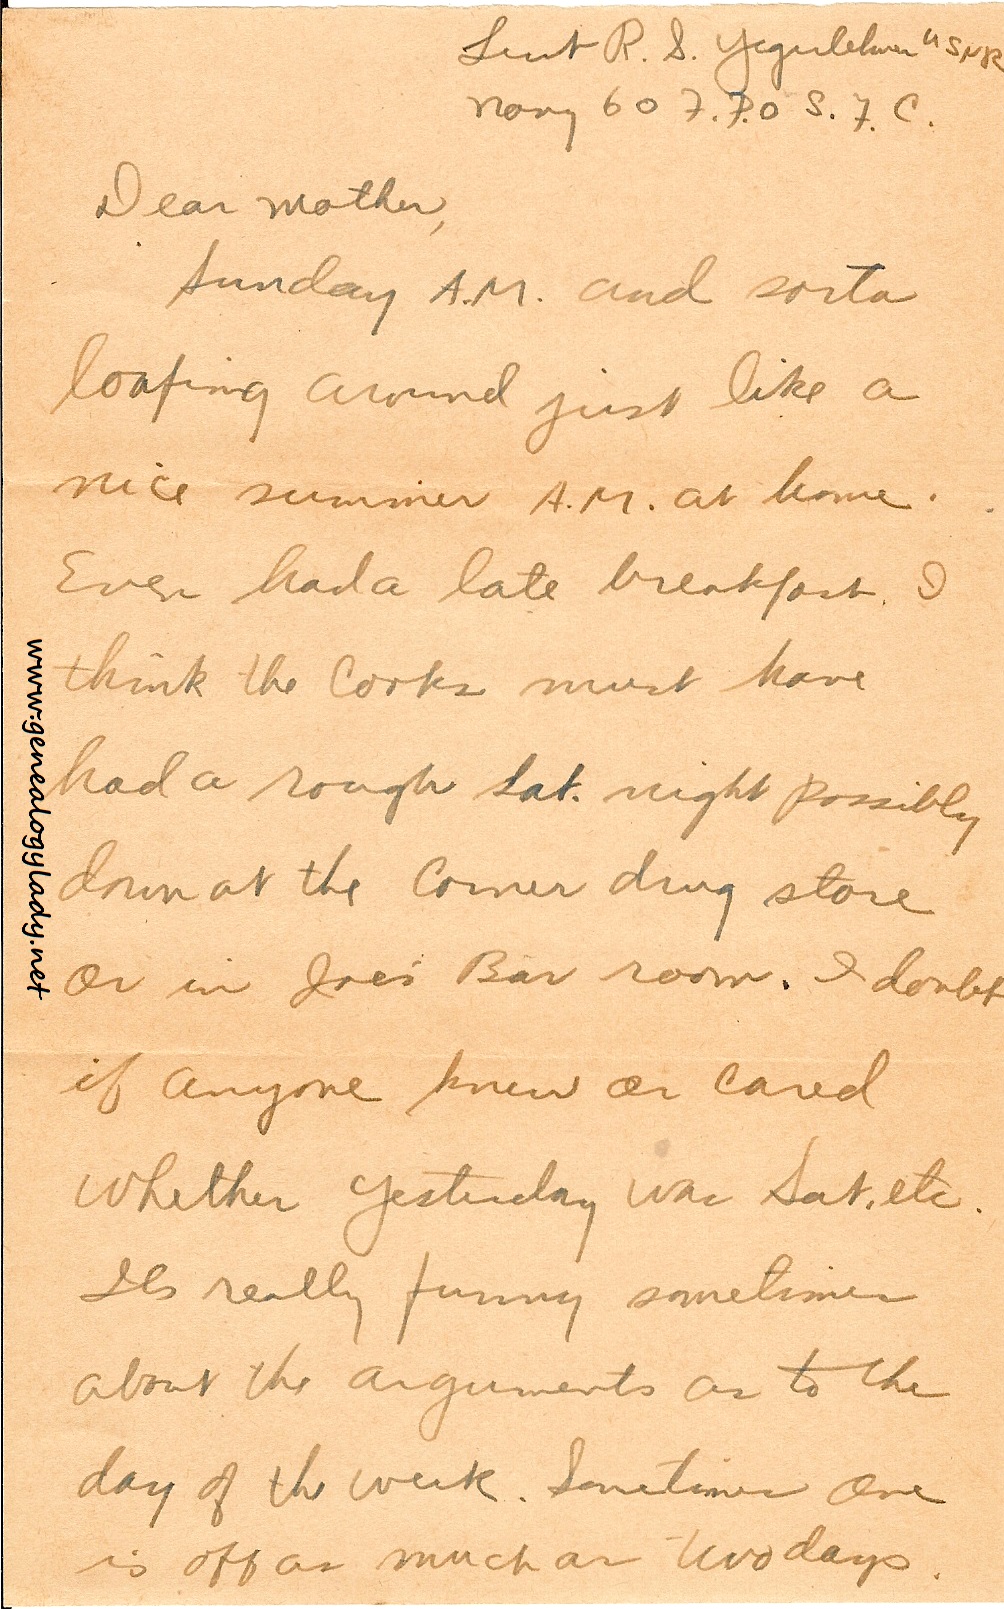 Lieut R. S. Yegerlehner USNR
Navy 60 F.P.O S. F. C.
Dear Mother,
Sunday A.M. and sorta
loafing around just like a
nice summer A.M. at home.
Even had a late breakfast. I
think the Cooks must have
had a rough Sat. night possibly
down at the Corner drug store
or in Joe's Bar room. I doubt
if anyone knew or cared
whether yesterday was Sat. etc.
Its really funny sometimes
about the arguments as to the
day of the week. Sometimes one
is off as much as two days.
www.genealogylady.net